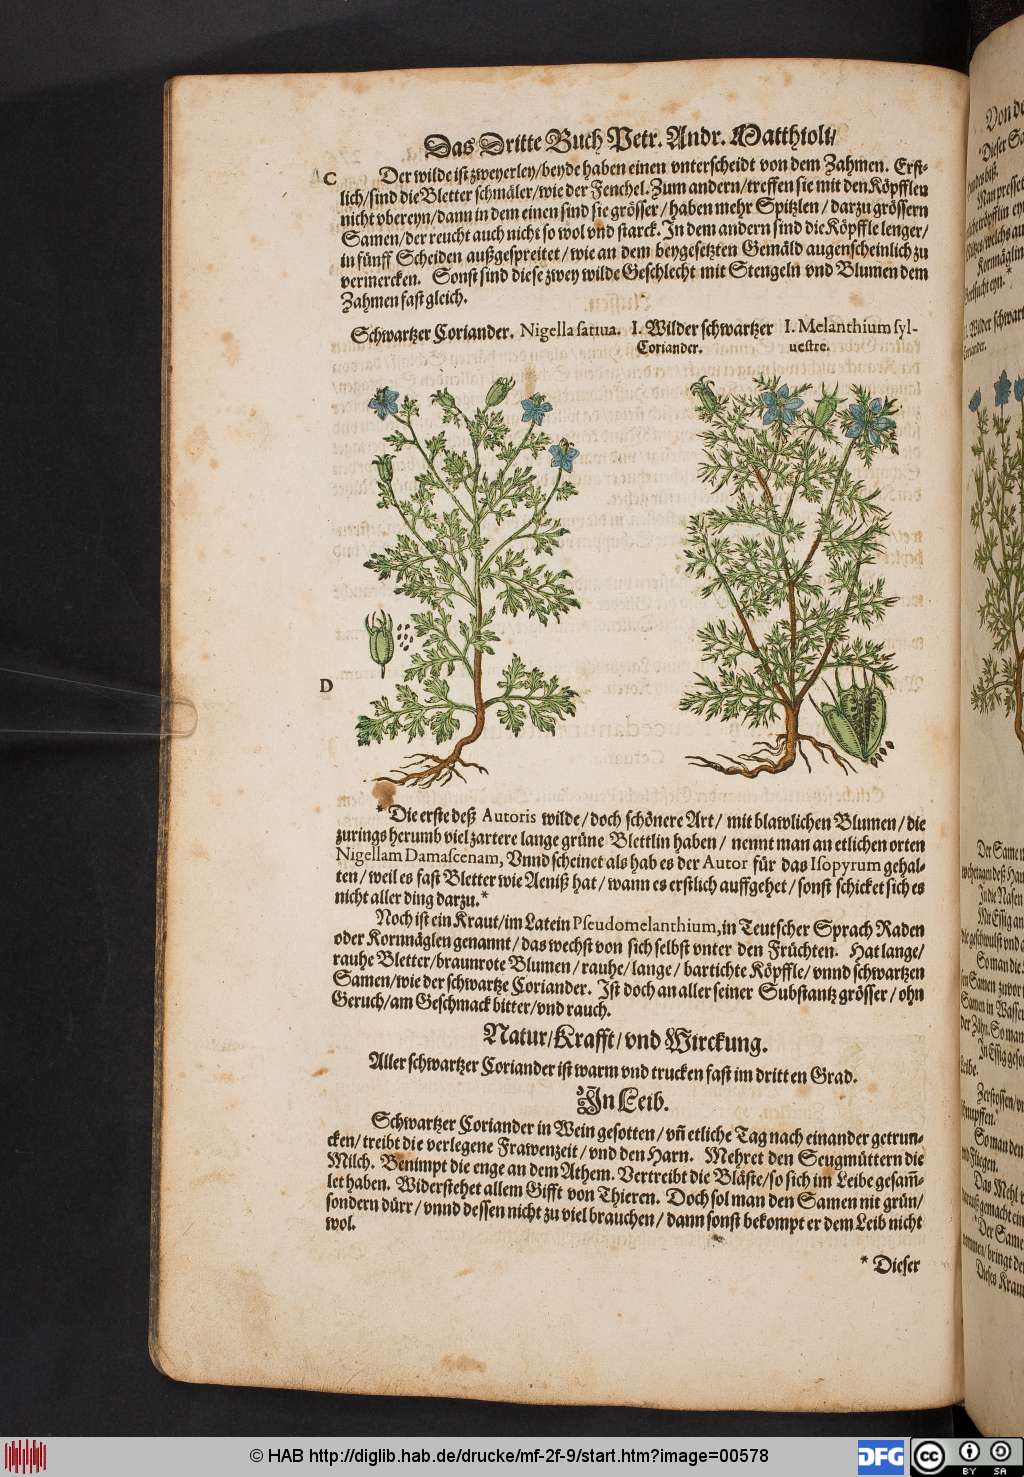 Das Dritte Buch Petr. Andr. Matthioli/
C
Der wilde ist zweyerley/beyde haben einen vnterscheidt von dem Zahmen. Erst-
lich/sind die Bletter schmäler/wie der Fenchel. Zum andern/treffen sie mit den Köpfflen
nicht vberein/dann in dem einen sind sie grösser/haben mehr Spitzlen/darzu grössern
Samen/der reucht auch nicht so wol vnd starck. In dem andern sind die Köpffle lenger/
in fünff Scheiden außgespreitet/wie an dem beygesetzten Gemäld augenscheinlich zu
vermercken. Sonst sind diese zwey wilde Geschlecht mit Stengeln vnd Blumen dem
Zahmen fast gleich.
Schwartzer Coriander. Nigella satiua. I. Wilder schwartzer I. Melanthium syl-
Coriander. uestre.
D
* Die erste deß Autoris wilde/doch schönere Art/mit blawlichen Blumen/die
zurings herumb viel zartere lange grüne Blettlin haben/nennt man an etlichen orten
Nigellam Damascenam, Vnnd scheinet als hab es der Autor für das Isopyrum gehal-
ten/weil es fast Bletter wie Aeniß hat/wann es erstlich auffgehet/sonst schicket sich es
nicht aller ding darzu.*
Noch ist ein Kraut/im Latein Pseudomelanthium, in Teutscher Sprach Raden
oder Kornnäglen genannt/das wechst von sich selbst vnter den Früchten. Hat lange/
rauhe Bletter/braunrote Blumen/rauhe/lange/bartichte Köpffle/vnnd schwartzen
Samen/wie der schwartze Coriander. Ist doch an aller seiner Substantz grösser/ohn
Geruch/am Geschmack bitter/vnd rauch.
Natur/Krafft/vnd Wirckung.
Aller schwartzer Coriander ist warm vnd trucken fast im dritten Grad.
In Leib.
Schwartzer Coriander in Wein gesotten/vñ etliche Tag nach einander getrun-
cken/treibt die verlegene Frawenzeit/vnd den Harn. Mehret den Seugmüttern die
Milch. Benimpt die enge an dem Athem. Vertreibt die Bläste/so sich im Leibe gesam̃-
let haben. Widerstehet allem Gifft von Thieren. Doch sol man den Samen nit grün/
sondern dürr/vnnd dessen nicht zu viel brauchen/dann sonst bekompt er dem Leib nicht
wol.
* Dieser
Von de
Dieser Sa
Man presset
Kornnäglin
Wilder schwart
Coriander.
Der Same
In die Nasen
Mit Essig an
So man die
sen Samen zuvor
Samen in Wasser
der Zän. So man
In Essig geso
Leibe.
Zerstossen/vn
So man den
vnd Fliegen.
Das Mehl
gemacht ein
Der Same
Dieses Kraut
© HAB http://diglib.hab.de/drucke/mf-2f-9/start.htm?image=00578
DFG
cc BY SA